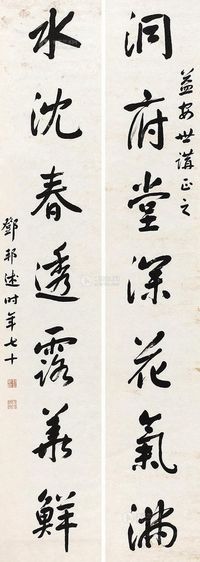 益安世講正之
洞府堂深花氣滿
水沈春透露華鮮
鄧邦述時年七十